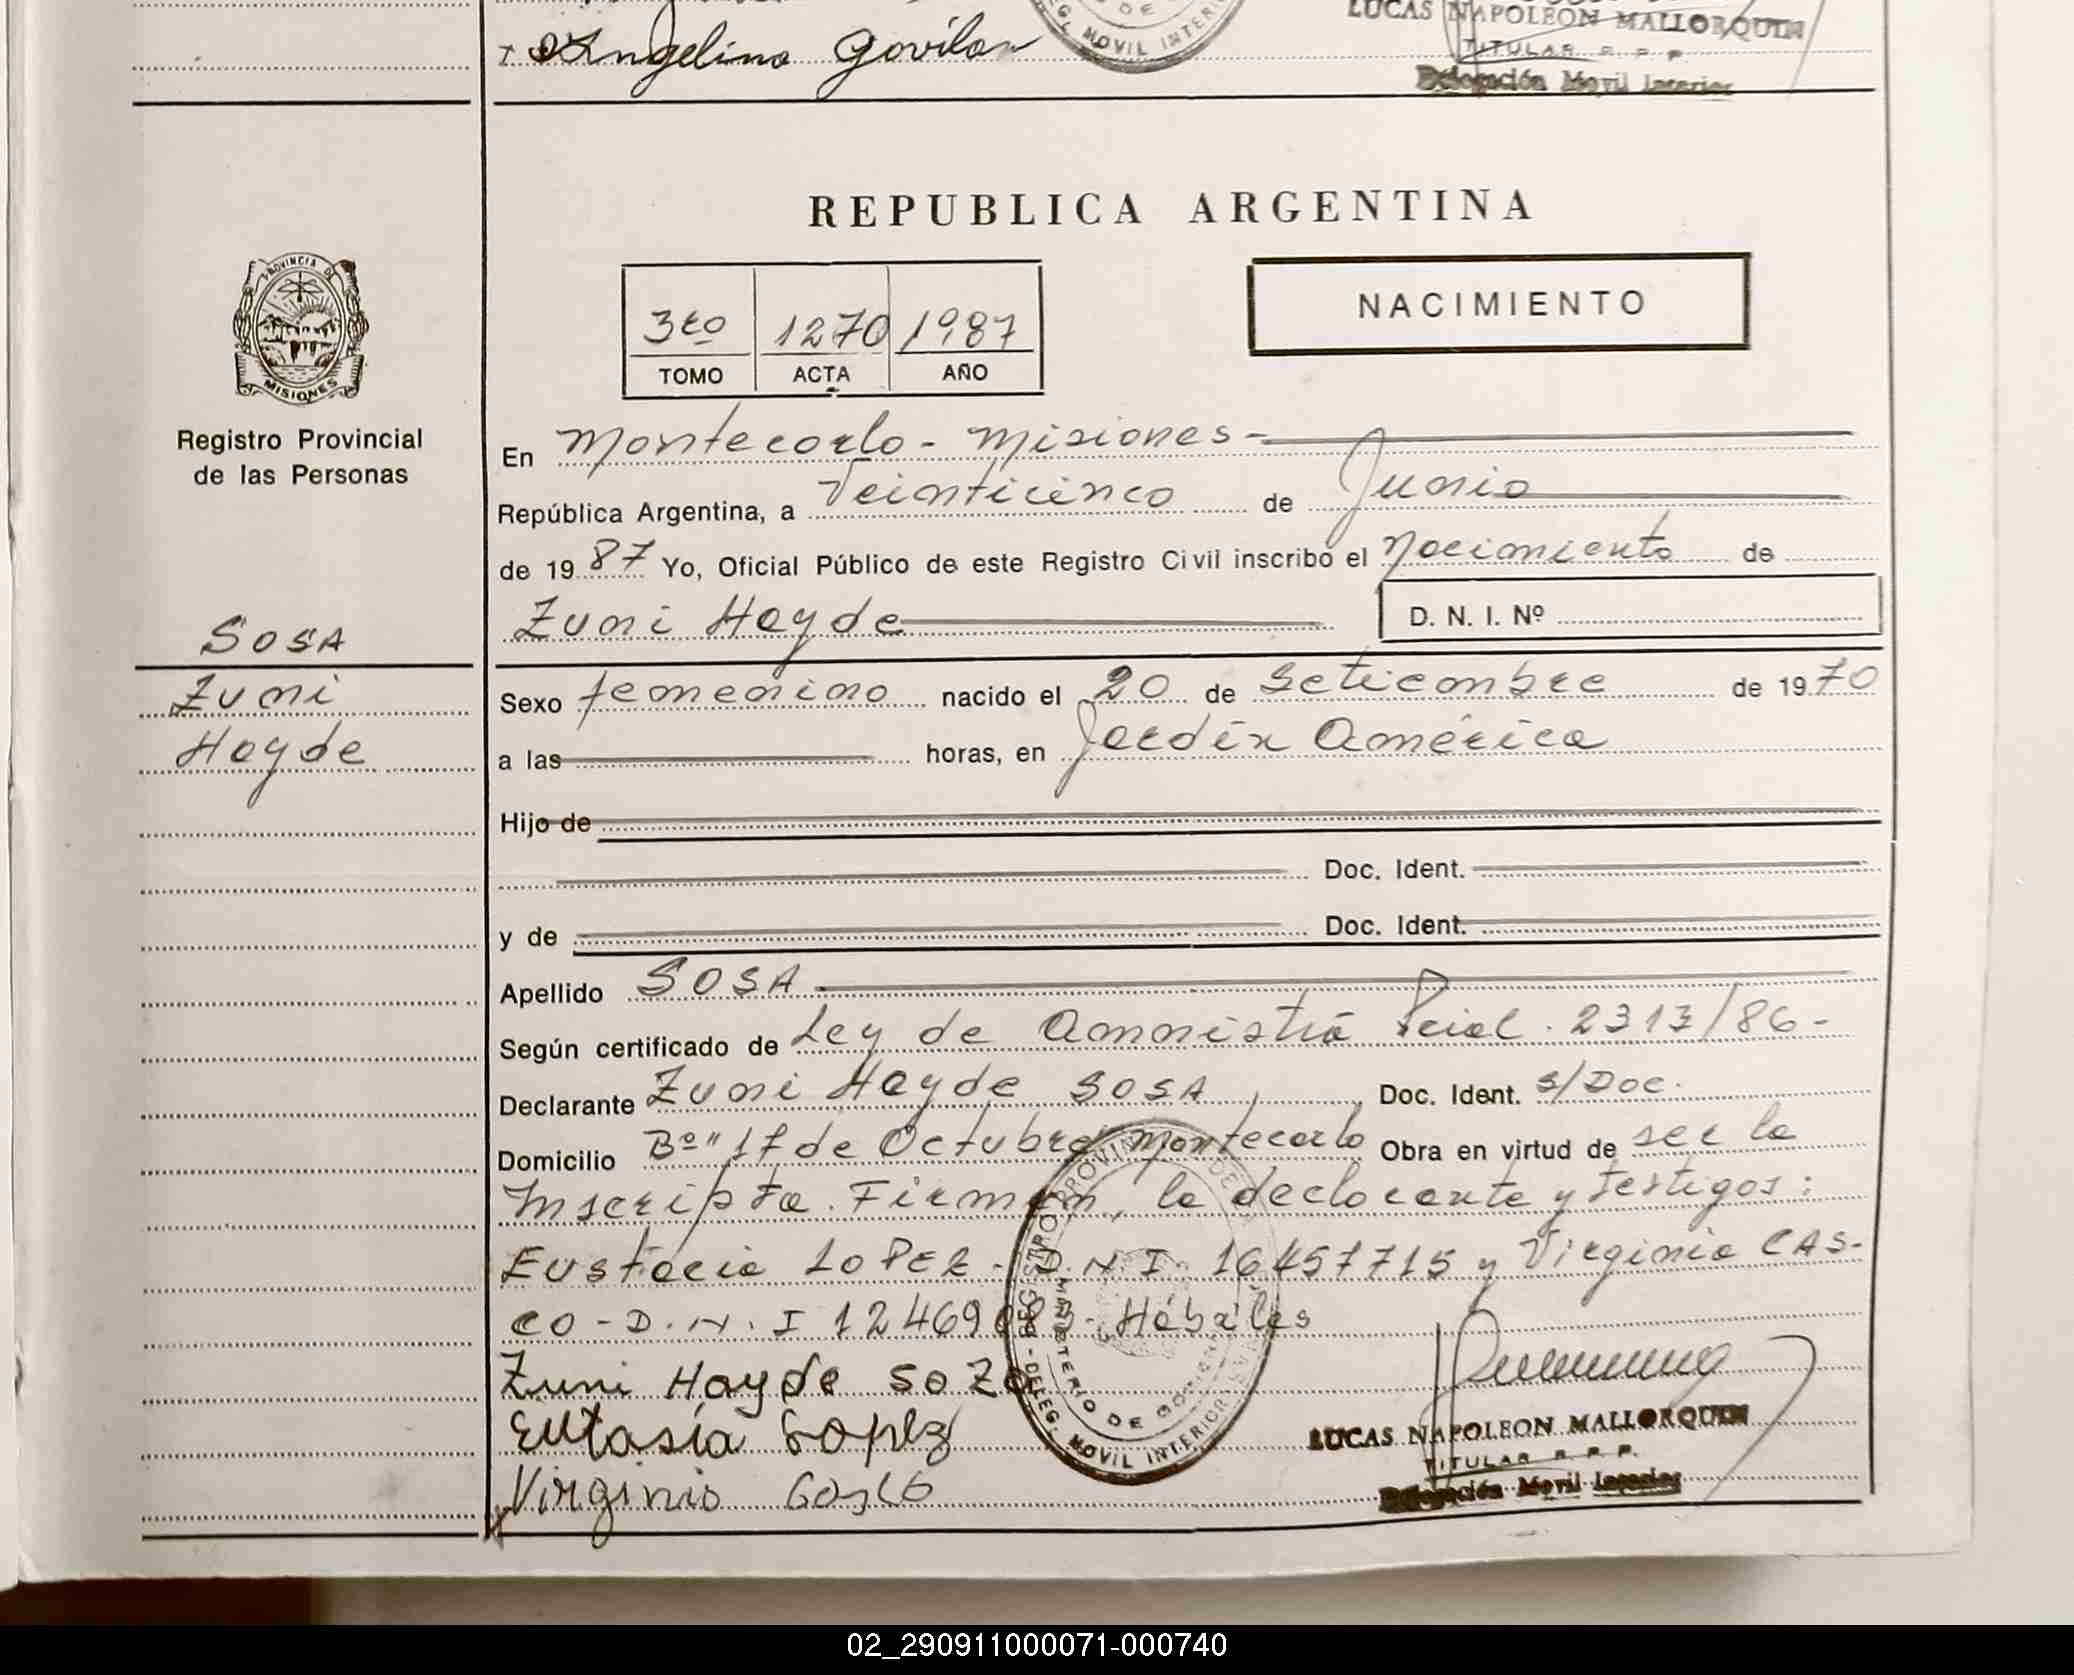 Angelina Gavilan
DELEG. MOVIL INTERIOR
LUCAS NAPOLEON MALLORQUIN
TITULAR R. P. P.
Delegación Movil Interior
REPUBLICA ARGENTINA
PROVINCIA DE MISIONES
Registro Provincial
de las Personas
3ro 1270 1987
TOMO ACTA AÑO
NACIMIENTO
En Montecarlo - Misiones -
República Argentina, a Veinticinco de Junio
de 1987 Yo, Oficial Público de este Registro Civil inscribo el Nacimiento de
Zuni Hayde D. N. I. Nº
SOSA
Zuni
Hayde
Sexo femenino nacido el 20 de Setiembre de 1970
a las horas, en Jardín América
Hijo de
Doc. Ident.
y de Doc. Ident.
Apellido SOSA
Según certificado de Ley de Amnistía Pcial. 2313/86-
Declarante Zuni Hayde SOSA Doc. Ident. S/Doc.
Domicilio Bº "17 de Octubre" Montecarlo Obra en virtud de ser la
Inscripta. Firman, la declarante y testigos:
Eustacia LOPEZ - D.N.I. 16457715 y Virginia CAS-
CO - D.N.I 12469083- Hábiles
Zuni Hayde SoZa
Eutasia Lopez
Virginia Casco
REGISTRO PROVINCIAL DE LAS PERSONAS - DELEG. MOVIL INTERIOR
MINISTERIO DE GOBIERNO
LUCAS NAPOLEON MALLORQUIN
TITULAR R. P. P.
Delegación Movil Interior
02_290911000071-000740